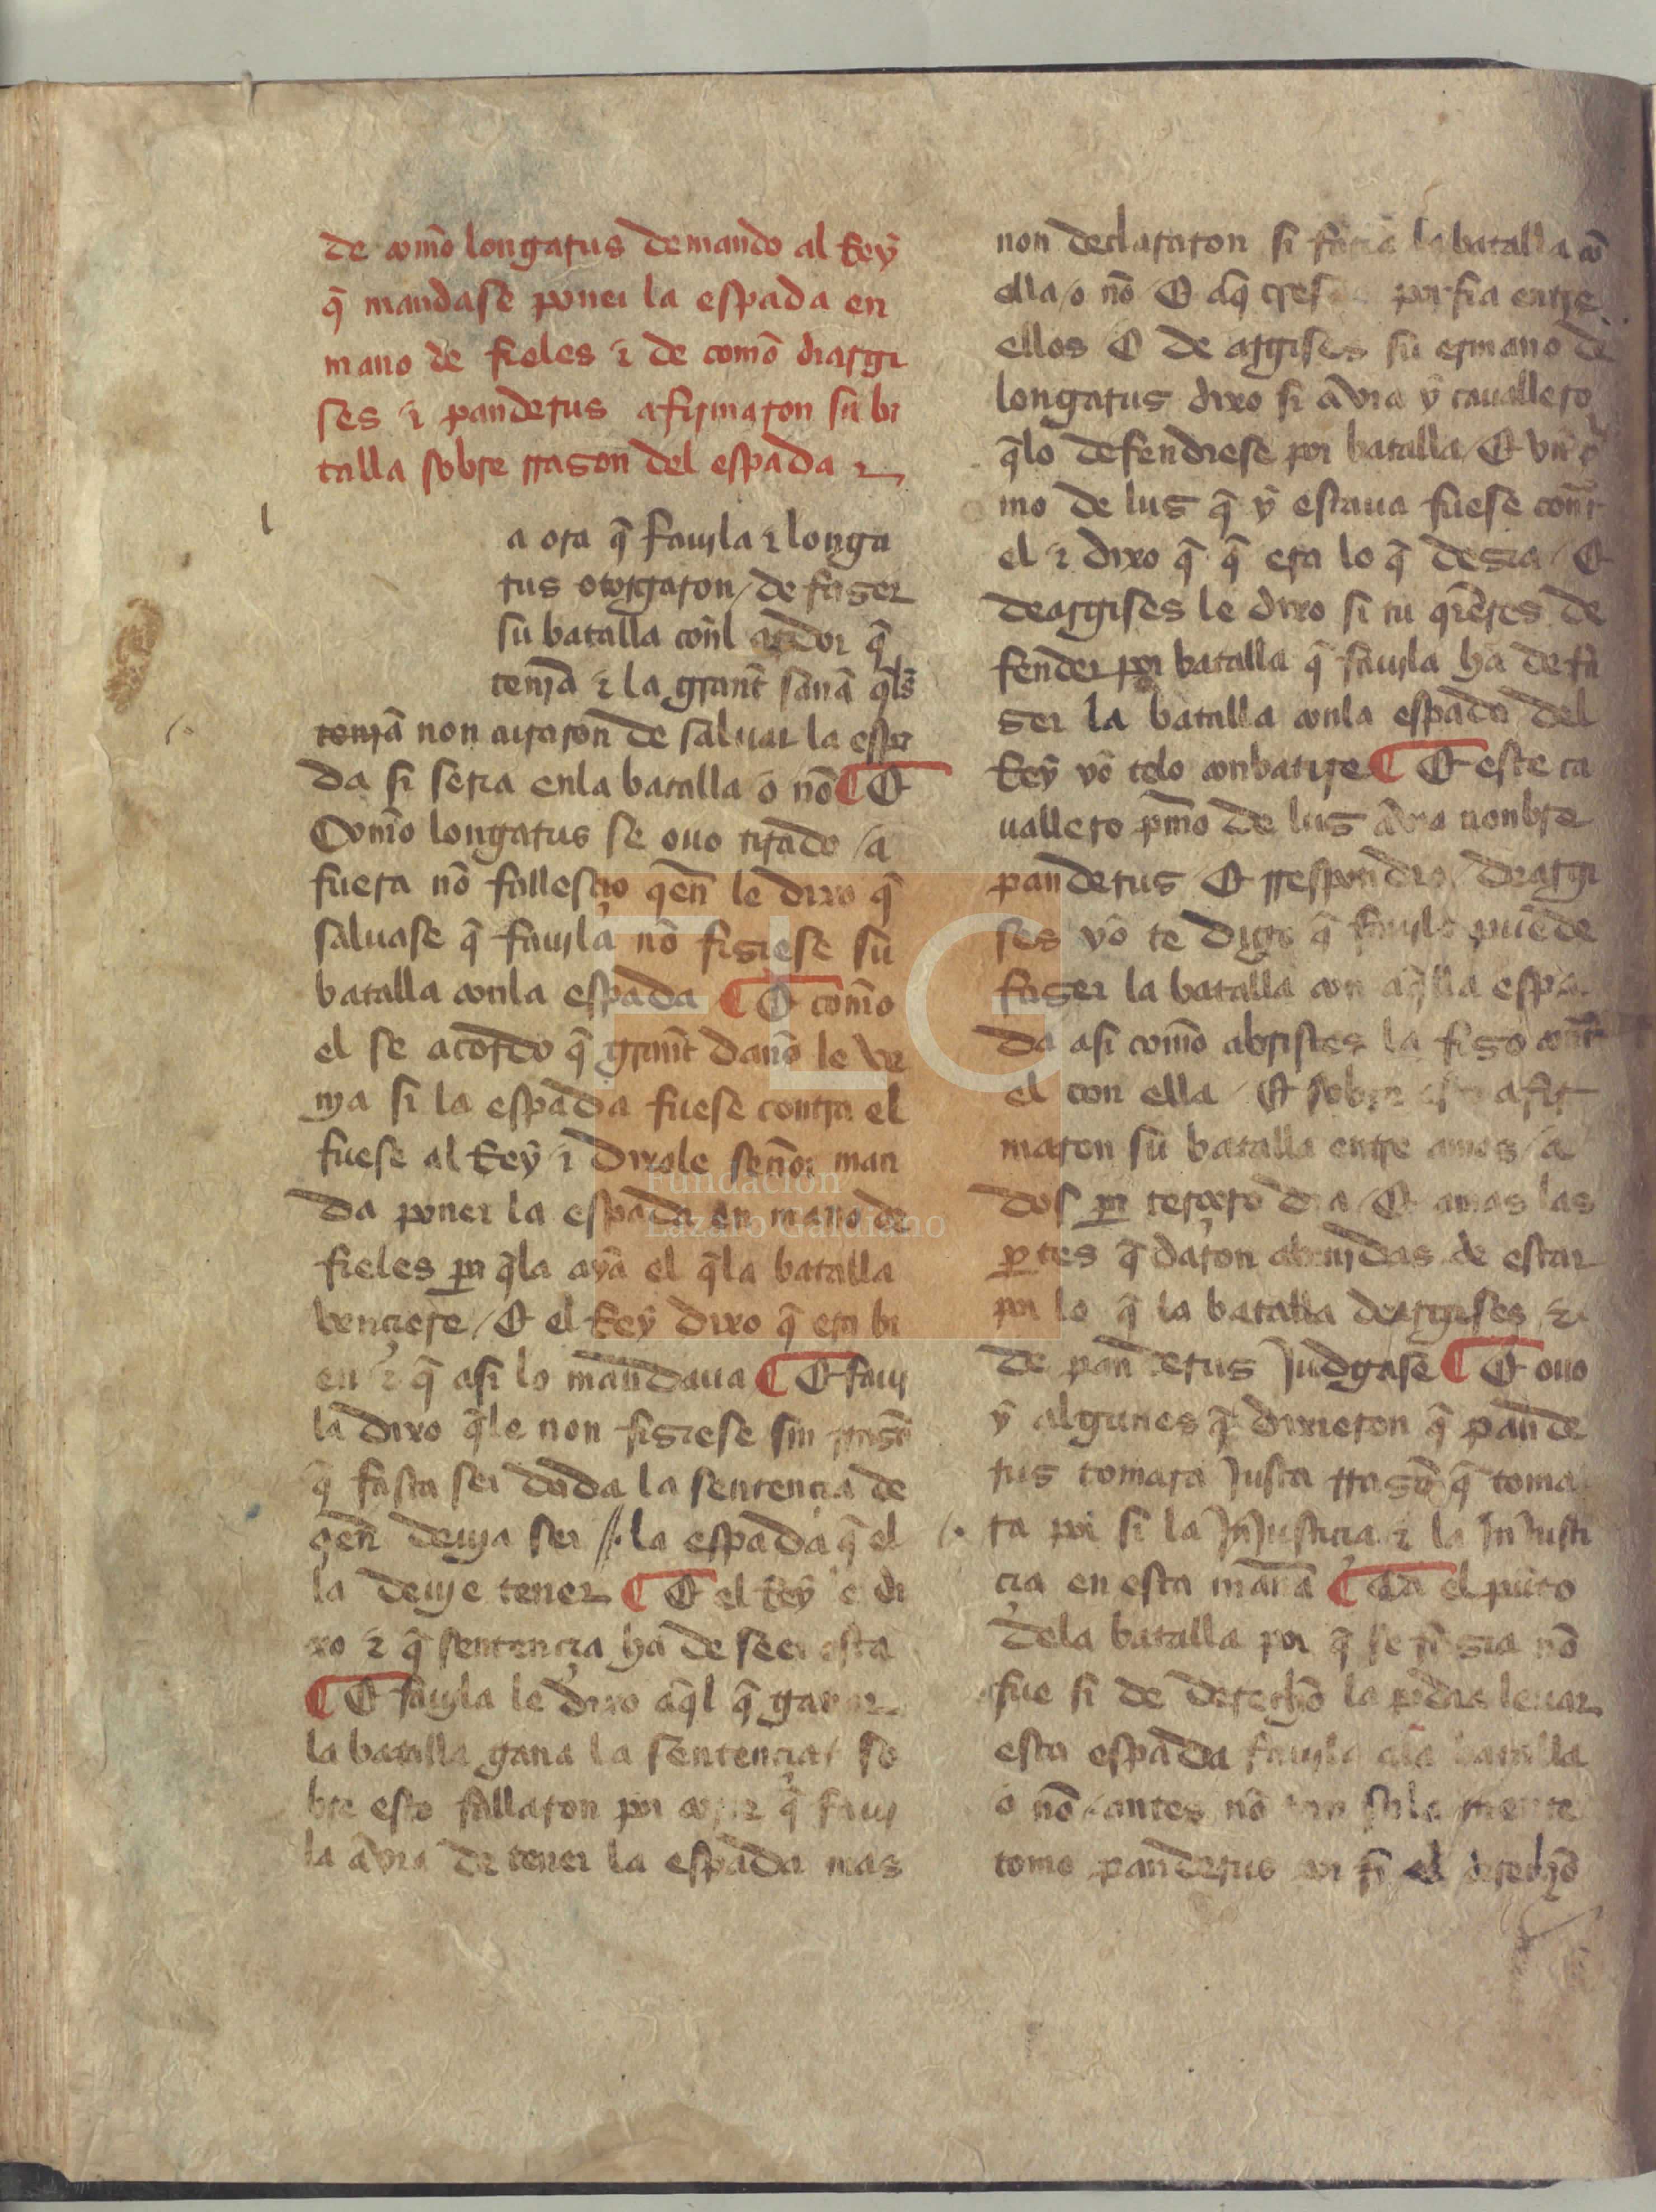 de com̃o longarus demando al Rey
q̃ mandase poner la espada en
mano de fieles ⁊ de comõ diargi
ses ⁊ panderus afirmaron su ba
talla sobre rrason del espada
l
a ora q̃ fauila ⁊ longa
rus otorgaron / de faser
su batalla con̄l ardor q̃
tenjã ⁊ la grant̃ sanã q̃ls
tenjã non curaron de saluar la espa
da si seria enla batalla o nõ ¶ E
Com̃o longarus se ouo tirado / a
fuera nõ fallesçio qen̄ le dixo q̃
saluase q̃ fauila nõ fisiese su
batalla conla espada ¶ E com̃o
el se acordo q̃ grant̃ danõ le ve
nja si la espada fuese contra el
fuese al Rey ⁊ dixole señor man
da poner la espada en mano de
fieles pa q̃la ayã el q̃la batalla
vençiere / E el Rey dixo q̃ era bi
en ⁊ q̃ asi lo mandaua ¶ E faui
la dixo q̃le non fisiese sin rrasõ
q̃ fasta ser dada la sentençia de
qen̄ deuja ser // la espada q̃ el
la deuje tener ¶ E el Rey di
xo ⁊ q̃ sentençia ha de seer esta
¶ E fauila le dixo aq̃l q̃ ganar
la batalla gana la sentençia / so
bre esto fallaron por q̃ faui
la avia de tener la espada mas
non declararon si faria la batalla cõ
ella / o nõ E aq̃ cresçio porfia entre
ellos E de argises su ermano de
longarus dixo si avia y cauallero
q̃lo defendiese por batalla / E vn p̃
mo de lus q̃ y estaua fuese contr
el ⁊ dixo q̃ q̃ era lo q̃ desia / E
deargises le dixo si tu q̃sieres de
fender por batalla q̃ fauila ha de fa
ser la batalla conla espada del
Rey yo telo conbatire ¶ E este ca
uallero pm̃o de lus avia nonbre
panderus / E rrespondio / diargi
ses yo te digo q̃ fauila puede
faser la batalla con aq̃lla espa
da asi com̃o abristes la fiso contr
el con ella / E sobre esto afir
maron su batalla entre amos / a
dos pa terçero dia / E amas las
ptes q̃daron abenjdas de estar
por lo q̃ la batalla deargises ⁊
de panderus judgase ¶ E ouo
y algunes q̃ dixieron q̃ pande
rus tomara justa rrasõ q̃ toma
ra por si la injustiçia ⁊ la injusti
çia en esta man̄a ¶ Ca el pũto
dela batalla por q̃ se fasia nõ
fue si de derechõ la podia leuar
esta espada fauila ala batalla
o nõ / antes nõ tan sola mente
tomo panderus por si el derechõ